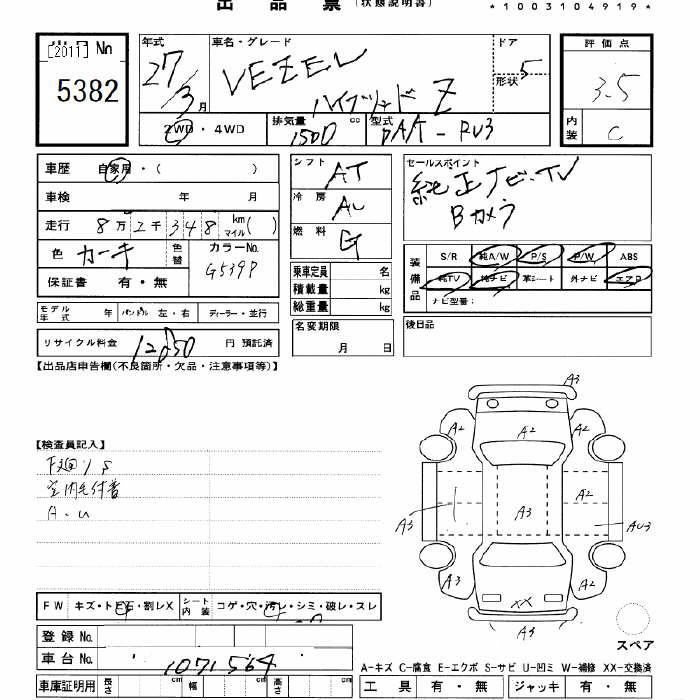 出品票 (状態説明書)
*1003104919*
出品 No
[2011]
5382
年式 27/3月
車名・グレード VEZEL ハイブリッド Z
ドア 5
形状
2WD・4WD
排気量 1500 cc
型式 DAA-RU3
評価点 3.5
内装 C
車歴 自家用・( )
車検 年 月
走行 8万2千348 km マイル( )
色 カーキ 色替 カラーNo. G539P
保証書 有・無
モデル年式 年 ハンドル 左・右 ディーラー・並行
リサイクル料金 12050 円 預託済
シフト AT
冷房
燃料 G
乗車定員 名
積載量 kg
総重量 kg
名変期限 月 日
セールスポイント
純正ナビ・TV
Bカメラ
装備品 S/R 純A/W P/S P/W ABS
純TV 純ナビ 革シート 外ナビ エアロ
ナビ型番:
後日品
【出品店申告欄(不良箇所・欠品・注意事項等)】
【検査員記入】
下廻りS
室内毛付着
A・U
A3
A2 A2 A2
A2
A3 A3 AU3
A3 A2
XX
A3
スペア
FW キズ・トビ石・割レX シート内装 コゲ・穴・汚レ・シミ・破レ・スレ
登録No.
車台No. 1071564
車庫証明用 長さ cm 幅 cm 高さ cm
A-キズ C-腐食 E-エクボ S-サビ U-凹ミ W-補修 XX-交換済
工具 有・無 ジャッキ 有・無